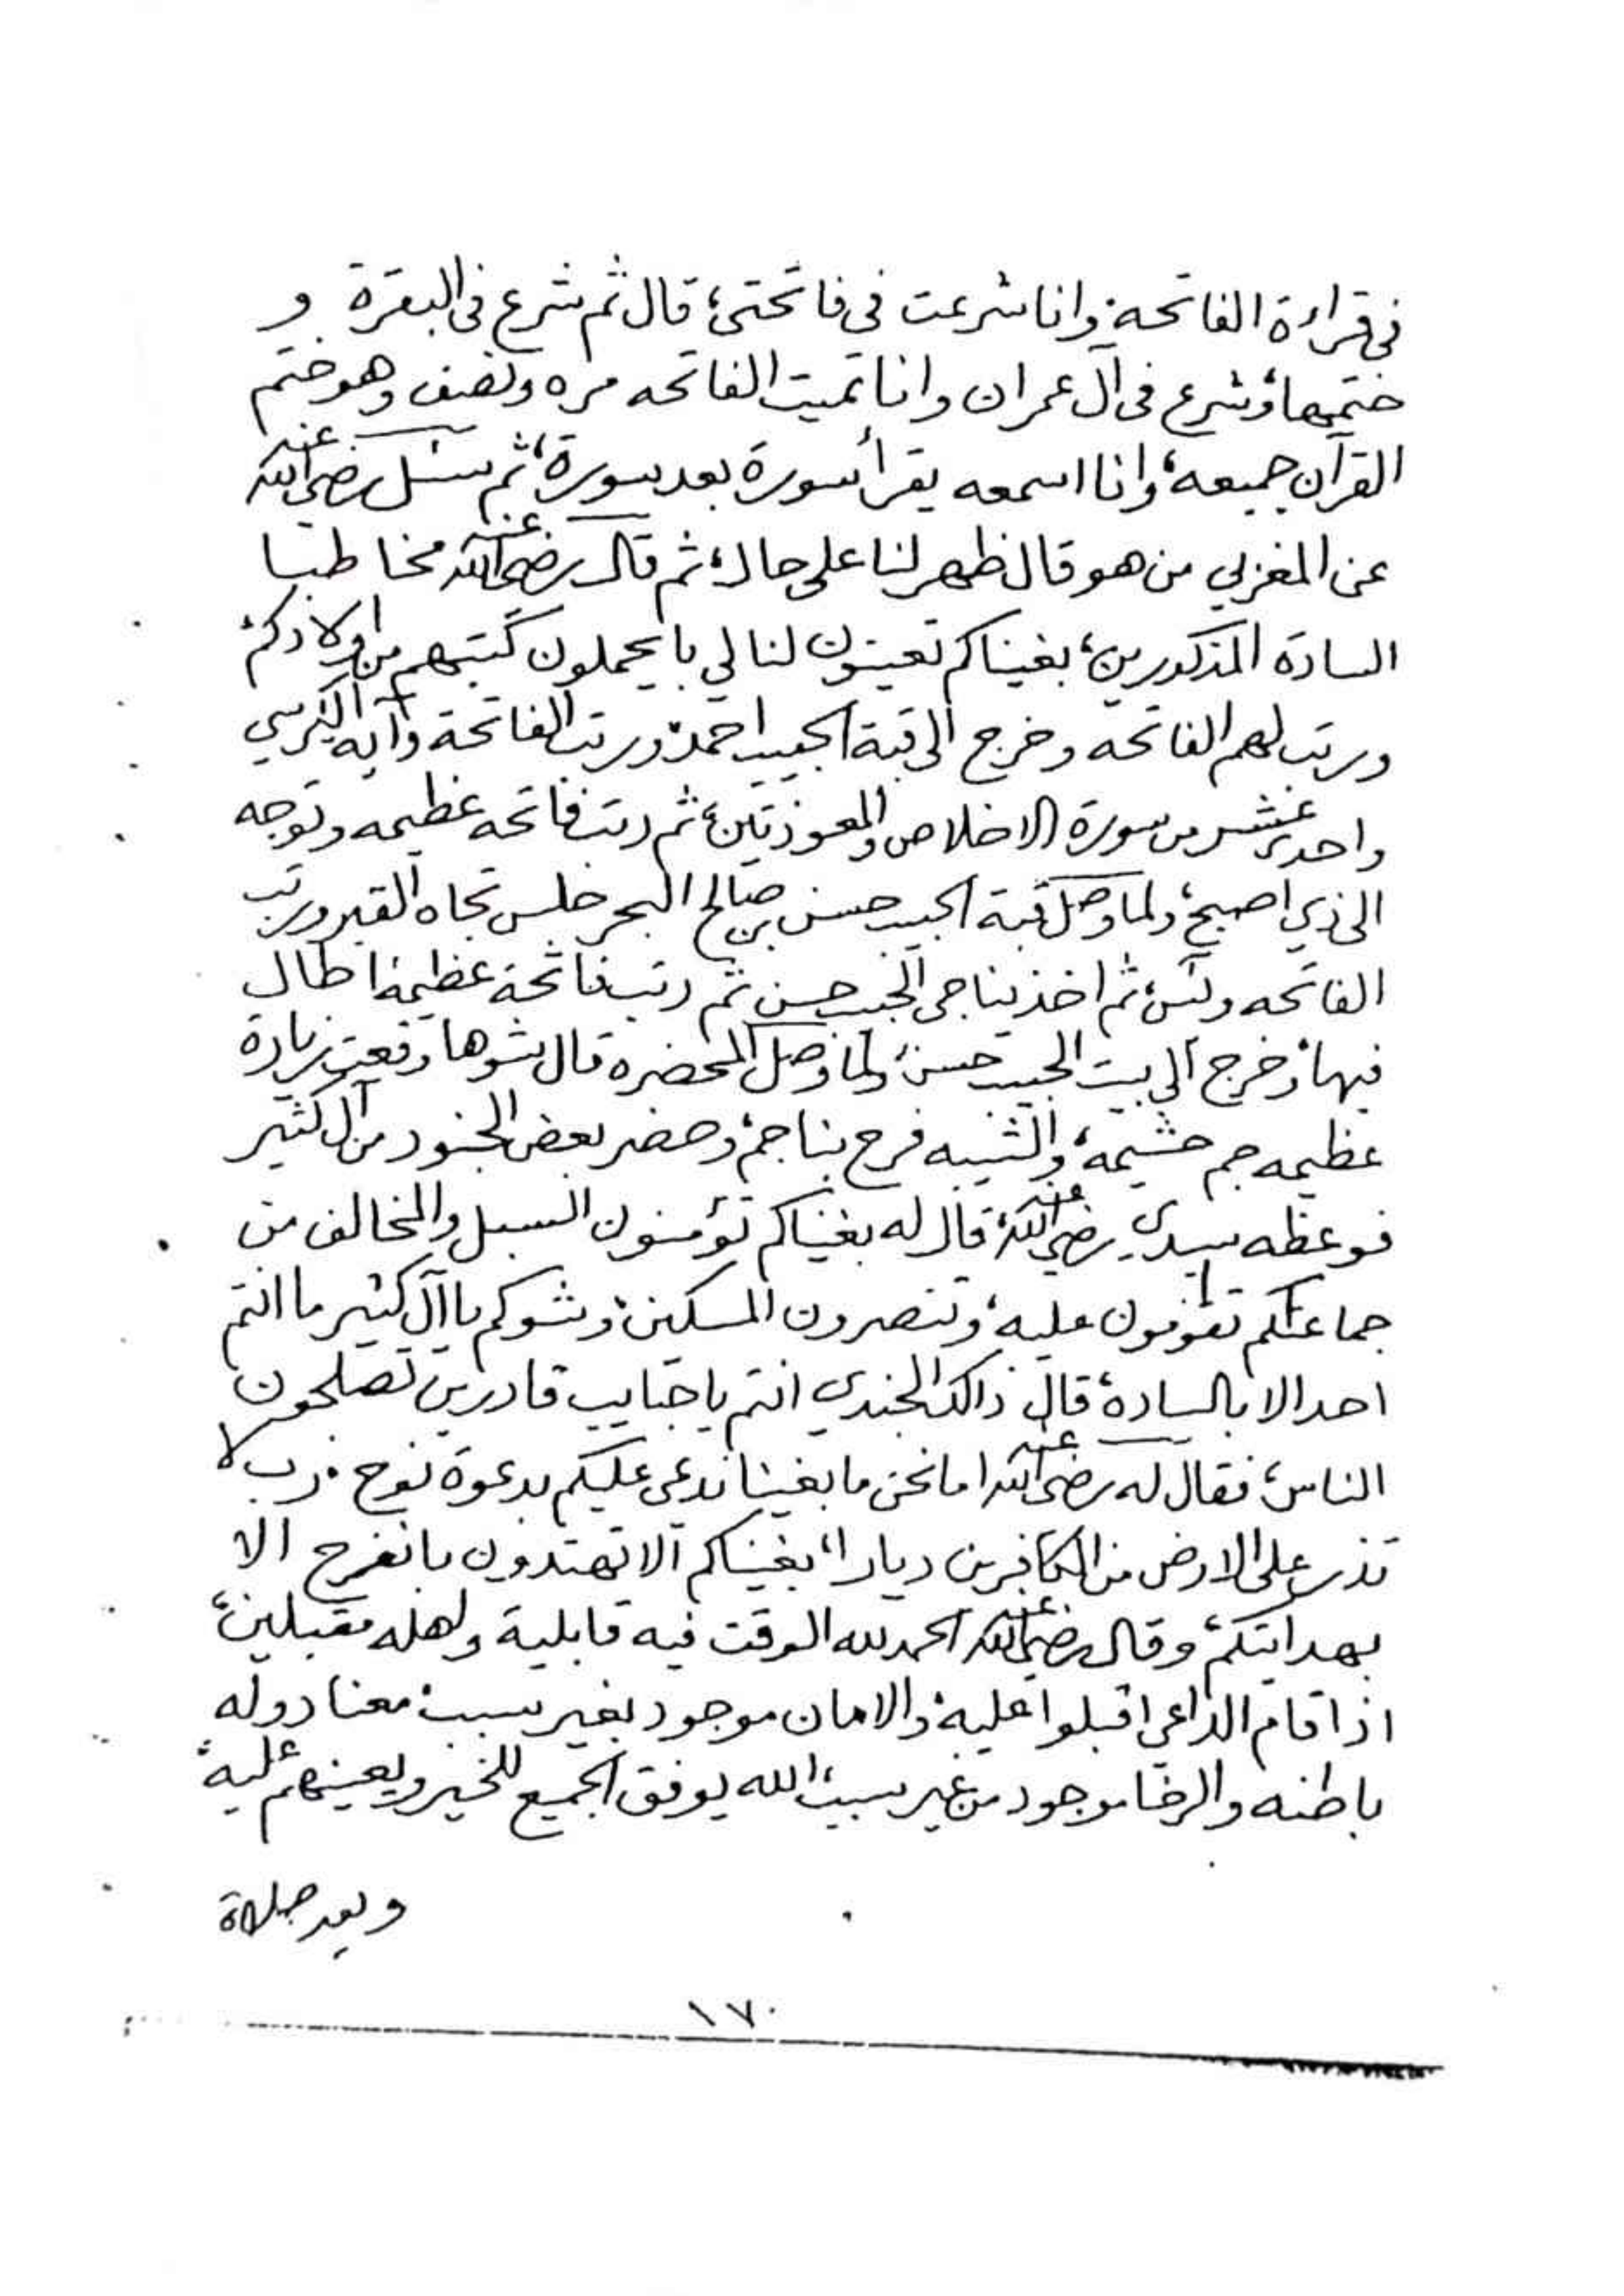 في قراءة الفاتحة، وانا شرعت في فاتحتي، قال ثم شرع في البقرة و
ختمها، وشرع في آل عمران وانا تميت الفاتحه مره ونصف وهو ختم
القرآن جميعه، وانا اسمعه يقرأ سورة بعد سورة، ثم سئل رضي الله عنه
عن المغربي من هو قال ظهر لنا على حال، ثم قال رضي الله عنه مخاطبا
السادة المذكورين، بغيناكم تعينون لنا لي با يحملون كتبهم من اولادكم،
ورتب لهم الفاتحه وخرج الى قبة الحبيب احمد، ورتب الفاتحة وآية الكرسي
واحد عشر من سورة الاخلاص والمعوذتين، ثم رتب فاتحه عظيمه وتوجه
الى ذي اصبح، ولما وصل قبة الحبيب حسن بن صالح البحر جلس تجاه القبر ورتب
الفاتحه ويس، ثم اخذ يناجي الحبيب حسن ثم رتب فاتحة عظيمة اطال
فيها، وخرج الى بيت الحبيب حسن، ولما وصل المحضره قال شوها وقعت زيارة
عظيمه جم حشيمة، والشيبه فرح بنا جم، وحضر بعض الجنود من آل كثير
فوعظه سيدي رضي الله عنه، قال له بغيناكم تؤمنون السبل والمخالف من
جماعتكم تقومون عليه، وتنصرون المسكين، وشوكم يا آل كثير ما انتم
احد الا بالسادة، قال ذالك الجندي انتم يا حبايب قادرين تصلحون
الناس، فقال له رضي الله عنه اما نحن ما بغينا ندعي عليكم بدعوة نوح . رب لا
تذر على الارض من الكافرين ديارا، بغيناكم الا تهتدون با نفرح الا
بهدايتكم، وقال رضي الله عنه الحمد لله الوقت فيه قابلية واهله مقبلين،
اذا قام الداعي اقبلوا عليه، والامان موجود بغير سبب، معنا دوله
باطنه والرخا موجود من غير سبب، الله يوفق الجميع للخير ويعينهم عليه،
وبعد صلاة
١٧٠